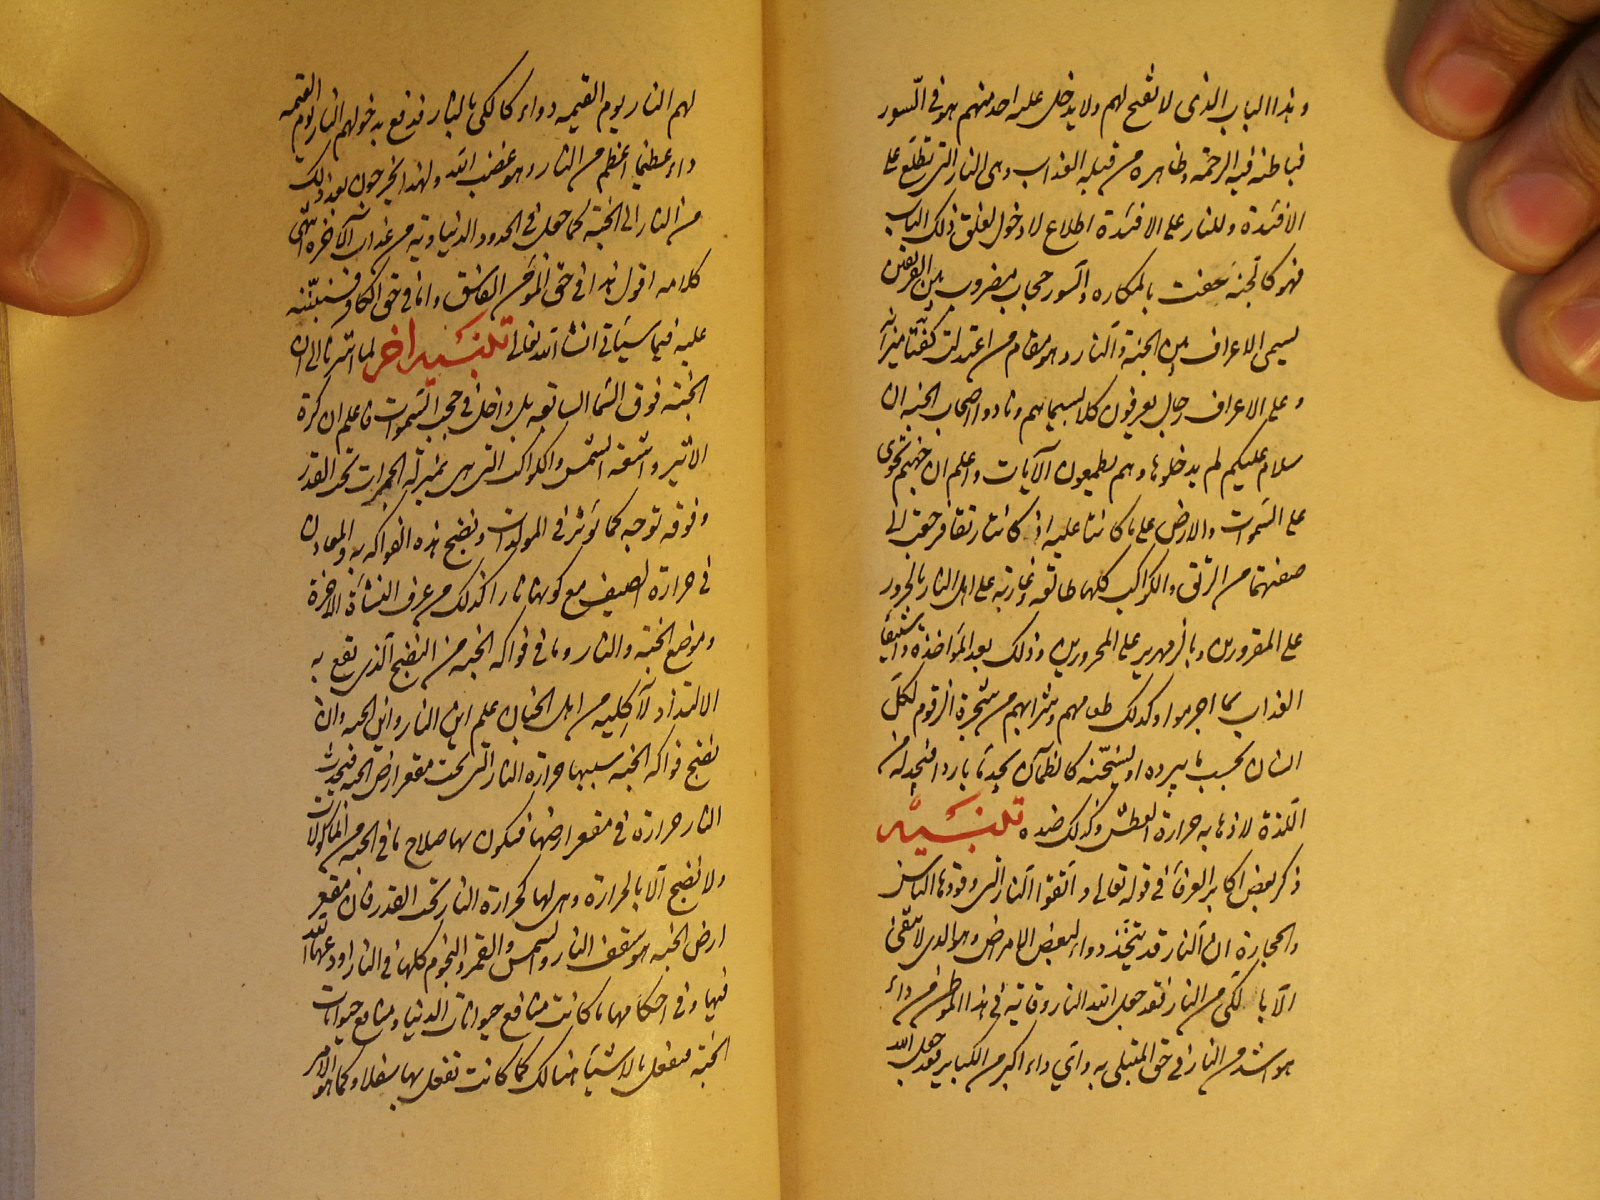 وهذا الباب الذى لا تفتح لهم ولا يدخل عليه احد منهم هو فى السور
فباطنه فيه الرحمة وظاهره من قبله العذاب وهى النار التى تطلع على
الافئدة وللنار على الافئدة اطلاع لا دخول لغلق ذلك الباب
فهو كالجنة حفت بالمكاره والسور حجاب مضروب بين الفريقين
يسمى الاعراف بين الجنة والنار وهو مقام من اعتدلت كفتا ميزانه
وعلى الاعراف رجال يعرفون كلا بسيماهم ونادوا اصحاب الجنة ان
سلام عليكم لم يدخلوها وهم يطمعون الآيات واعلم ان جهنم تحوى
على السموات والارض على ما كانتا عليه اذ كانتا رتقا فرجعت الى
صفتهما من الرتق والكواكب كلها طالعة وغاربة على اهل النار بالحرور
على المقرورين وبالزمهرير على المحرورين وذلك بعد المؤاخذة واستيفاء
العذاب بما اجرموا وكذلك طعامهم وشرابهم من شجرة الزقوم لكل
انسان بحسب ما يبرده او يسخنه كالظمآن يجد ماء باردا فيجد له من
اللذة لاذهابه حرارة العطش وكذلك ضده تنبيه
ذكر بعض اكابر العرفاء فى قوله تعالى واتقوا النار التى وقودها الناس
والحجارة ان النار قد يتخذ دواء لبعض الامراض وهو الذى لا يتقى
الا بالكى من النار فقد جعل الله النار وقاية فى هذا الموطن من داء
هو اشد من النار فى حق المبتلى به واى داء اكبر من الكبائر فقد جعل الله
لهم النار يوم القيمه دواء كالكى بالنار فدفع بدخولهم النار يوم القيمه
داء عظيما اعظم من النار وهو غضب الله ولهذا يخرجون بعد ذلك
من النار الى الجنة كما جعل فى الحدود الدنياوية من عذاب الآخرة انتهى
كلامه اقول هذا فى حق المؤمن الفاسق واما فى حق الكافر فسننبه
عليه فيما سيأتى انشاء الله تعالى تنبيه اخر لما اشرنا الى ان
الجنة فوق السماء السابعة بل داخل فى حجب السموات فاعلم ان كرة
الاثير واشعة الشمس والكواكب التى هى بمنزلة الجمرات تحت القدر
وفوقه توجه كما تؤثر فى المولدات وتنضج هذه الفواكه به والمعادن
فى حرارة الصيف مع كونها نارا كذلك من عرف النشأة الاخرة
وموضع الجنة والنار وما فى فواكه الجنة من النضج الذى تقع به
الالتذاذ لآكليه من اهل الجنان علم اين النار واين الجنه وان
نضج فواكه الجنه سببها حرارة النار التى تحت مقعر ارض الجنه فتحدث
النار حرارة فى مقعر ارضها فيكون بها صلاح ما فى الجنه من المأكولات
ولا تنضج الا بالحرارة وهى لها كحرارة النار تحت القدر فان مقعر
ارض الجنه هو سقف النار والشمس والقمر والنجوم كلها فى النار اودعها الله
فيها وفى احكامها ما كانت منافع حيوانات الدنيا ومنافع حيوانات
الجنه فتفعل بالاشياء هنالك كما كانت تفعل بها سفلا وكما هو الامر